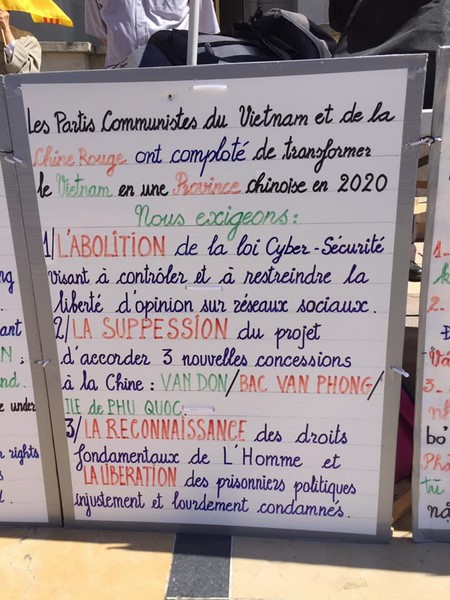 Les Partis Communistes du Vietnam et de la
Chine Rouge ont comploté de transformer
le Vietnam en une Province chinoise en 2020
Nous exigeons:
1/L'ABOLITION de la loi Cyber-Sécurité
visant à contrôler et à restreindre la
liberté d'opinion sur réseaux sociaux.
2/LA SUPPESSION du projet
d'accorder 3 nouvelles concessions
à la Chine: VAN DON/BAC VAN PHONG/
ILE de PHU QUOC.
3/LA RECONNAISSANCE des droits
fondamentaux de L'Homme et
LA LIBERATION des prisonniers politiques
injustement et lourdement condamnés.
under
rights
1-
2-
3-